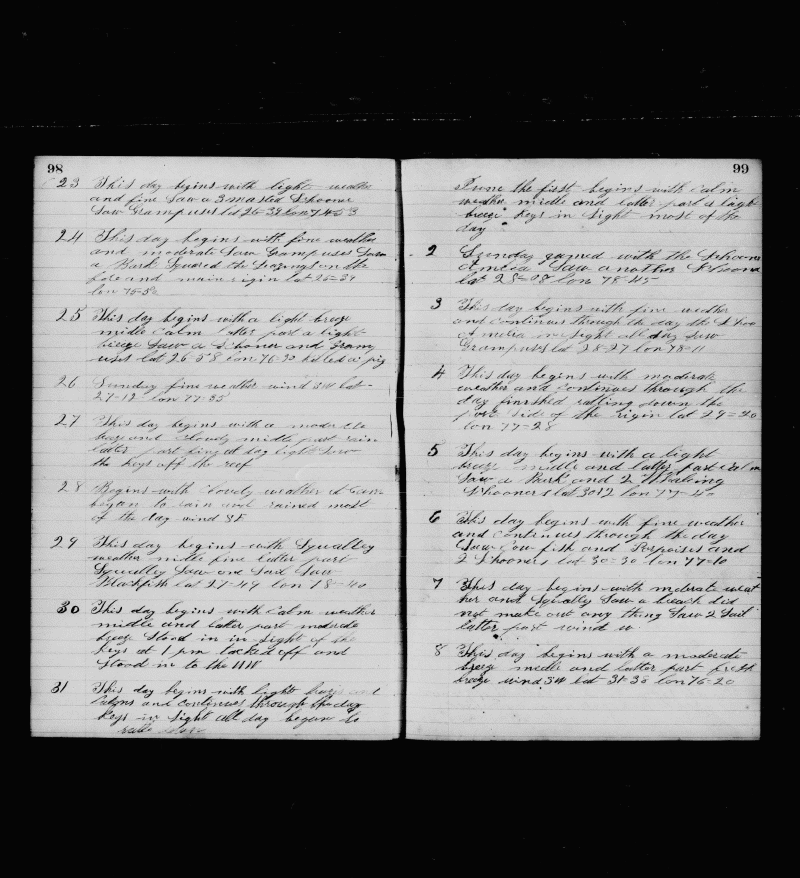 98
23 This day begins with light weather
and fine Saw a 3 masted Schooner
Saw Grampuses lat 26-39 lon 74-53
24 This day begins with fine weather
and moderate Saw Grampuses Saw
a Bark Squared the on the
fore and main rigin lat 26-39
lon 75-50
25 This day begins with a light breze
midle calm latter part a light
breeze Saw a Schoner and Gramp
uses lat 26-58 lon 76-20 killed a pig
26 Sunday fine weather wind SW lat
27-12 lon 77-35
27 This day begins with a moderate
breze and cloudy middle part rain
latter part fine at day light Saw
the keys off the reef
28 Begins with cloudy weather at 6 am
began to rain and rained most
of the day wind SE
29 This day begins with Squalley
weather midle fine latter part
Squalley Saw one Sail Saw
Blackfish lat 27-49 lon 78-40
30 This day begins with calm weather
midle and latter part moderate
breze Stood in in Sight of the
keys at 1 pm tacked off and
Stood in to the NW
31 This day begins with light breze and
calms and continues through the day
keys in Sight all day began to
99
June the first begins with calm
weather middle and latter part a light
breeze keys in Sight most of the
day
2 Sunday gamed with the Schooner
Amelia Saw another Schooner
lat 28-08 lon 78-45
3 This day begins with fine weather
and continues through the day the Schoo
Amelia in Sight all day Saw
Grampuses lat 28-27 lon 78-11
4 This day begins with moderate
weather and continues through the
day finished ratling down the
port side of the rigin lat 29-20
lon 77-28
5 This day begins with a light
breeze midle and latter part calm
Saw a Bark and 2 Whaling
Schooners lat 30-12 lon 77-40
6 This day begins with fine weather
and continues through the day
Saw Cow fish and Porpoises and
2 Shooners lat 30-30 lon 77-10
7 This day begins with mderate weat
her and Squally Saw a breach did
not make out any thing Saw 2 Sail
latter part wind w
8 This day begins with a moderate
breeze midle and latter part fresh
breeze wind SW lat 31-30 lon 76-20